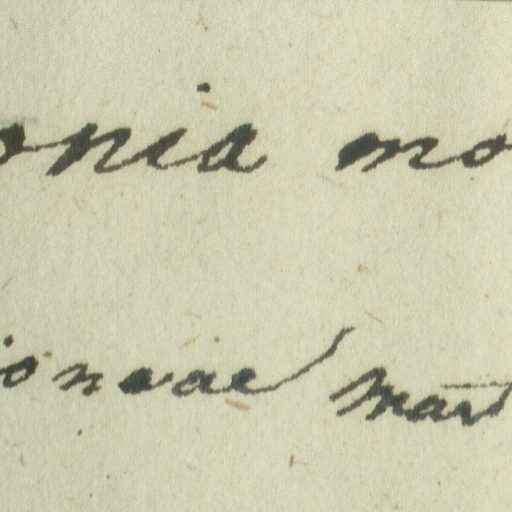 onia mo
ioneae mar